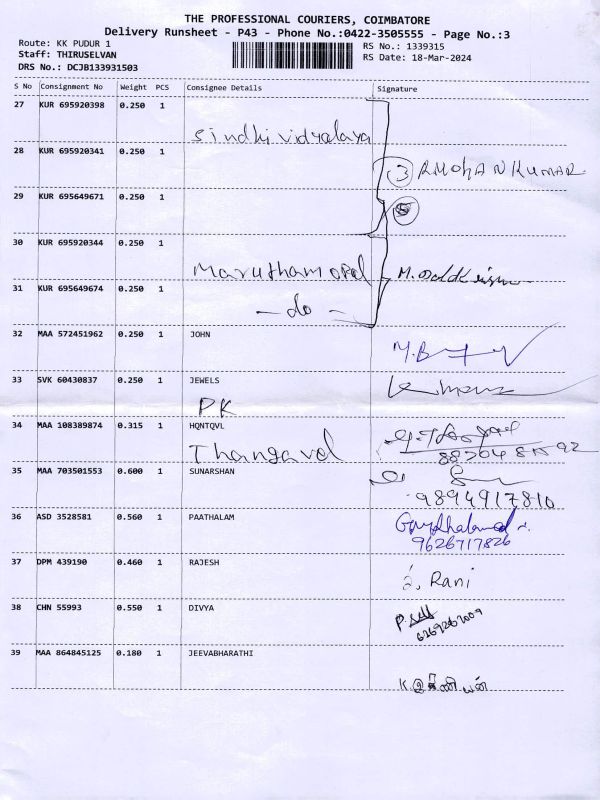 THE PROFESSIONAL COURIERS, COIMBATORE
Delivery Runsheet - P43 - Phone No.:0422-3505555 - Page No.:3
Route: KK PUDUR 1
RS No.: 1339315
Staff: THIRUSELVAN
RS Date: 18-Mar-2024
DRS No.: DCJB133931503
S No Consignment No Weight PCS Consignee Details Signature
27 KUR 695920398 0.250 1
Sindhi vidyalaya
28 KUR 695920341 0.250 1
3 RMOHAN KUMAR
29 KUR 695649671 0.250 1
30 KUR 695920344 0.250 1
31 KUR 695649674 0.250 1
- do -
32 MAA 572451962 0.250 1 JOHN
33 SVK 60430837 0.250 1 JEWELS
PK
34 MAA 108389874 0.315 1 HQNTQVL
Thangavel
35 MAA 703501553 0.600 1 SUNARSHAN
9894917810
36 ASD 3528581 0.560 1 PAATHALAM
9626717826
37 DPM 439190 0.460 1 RAJESH
Rani
38 CHN 55993 0.550 1 DIVYA
39 MAA 864845125 0.180 1 JEEVABHARATHI